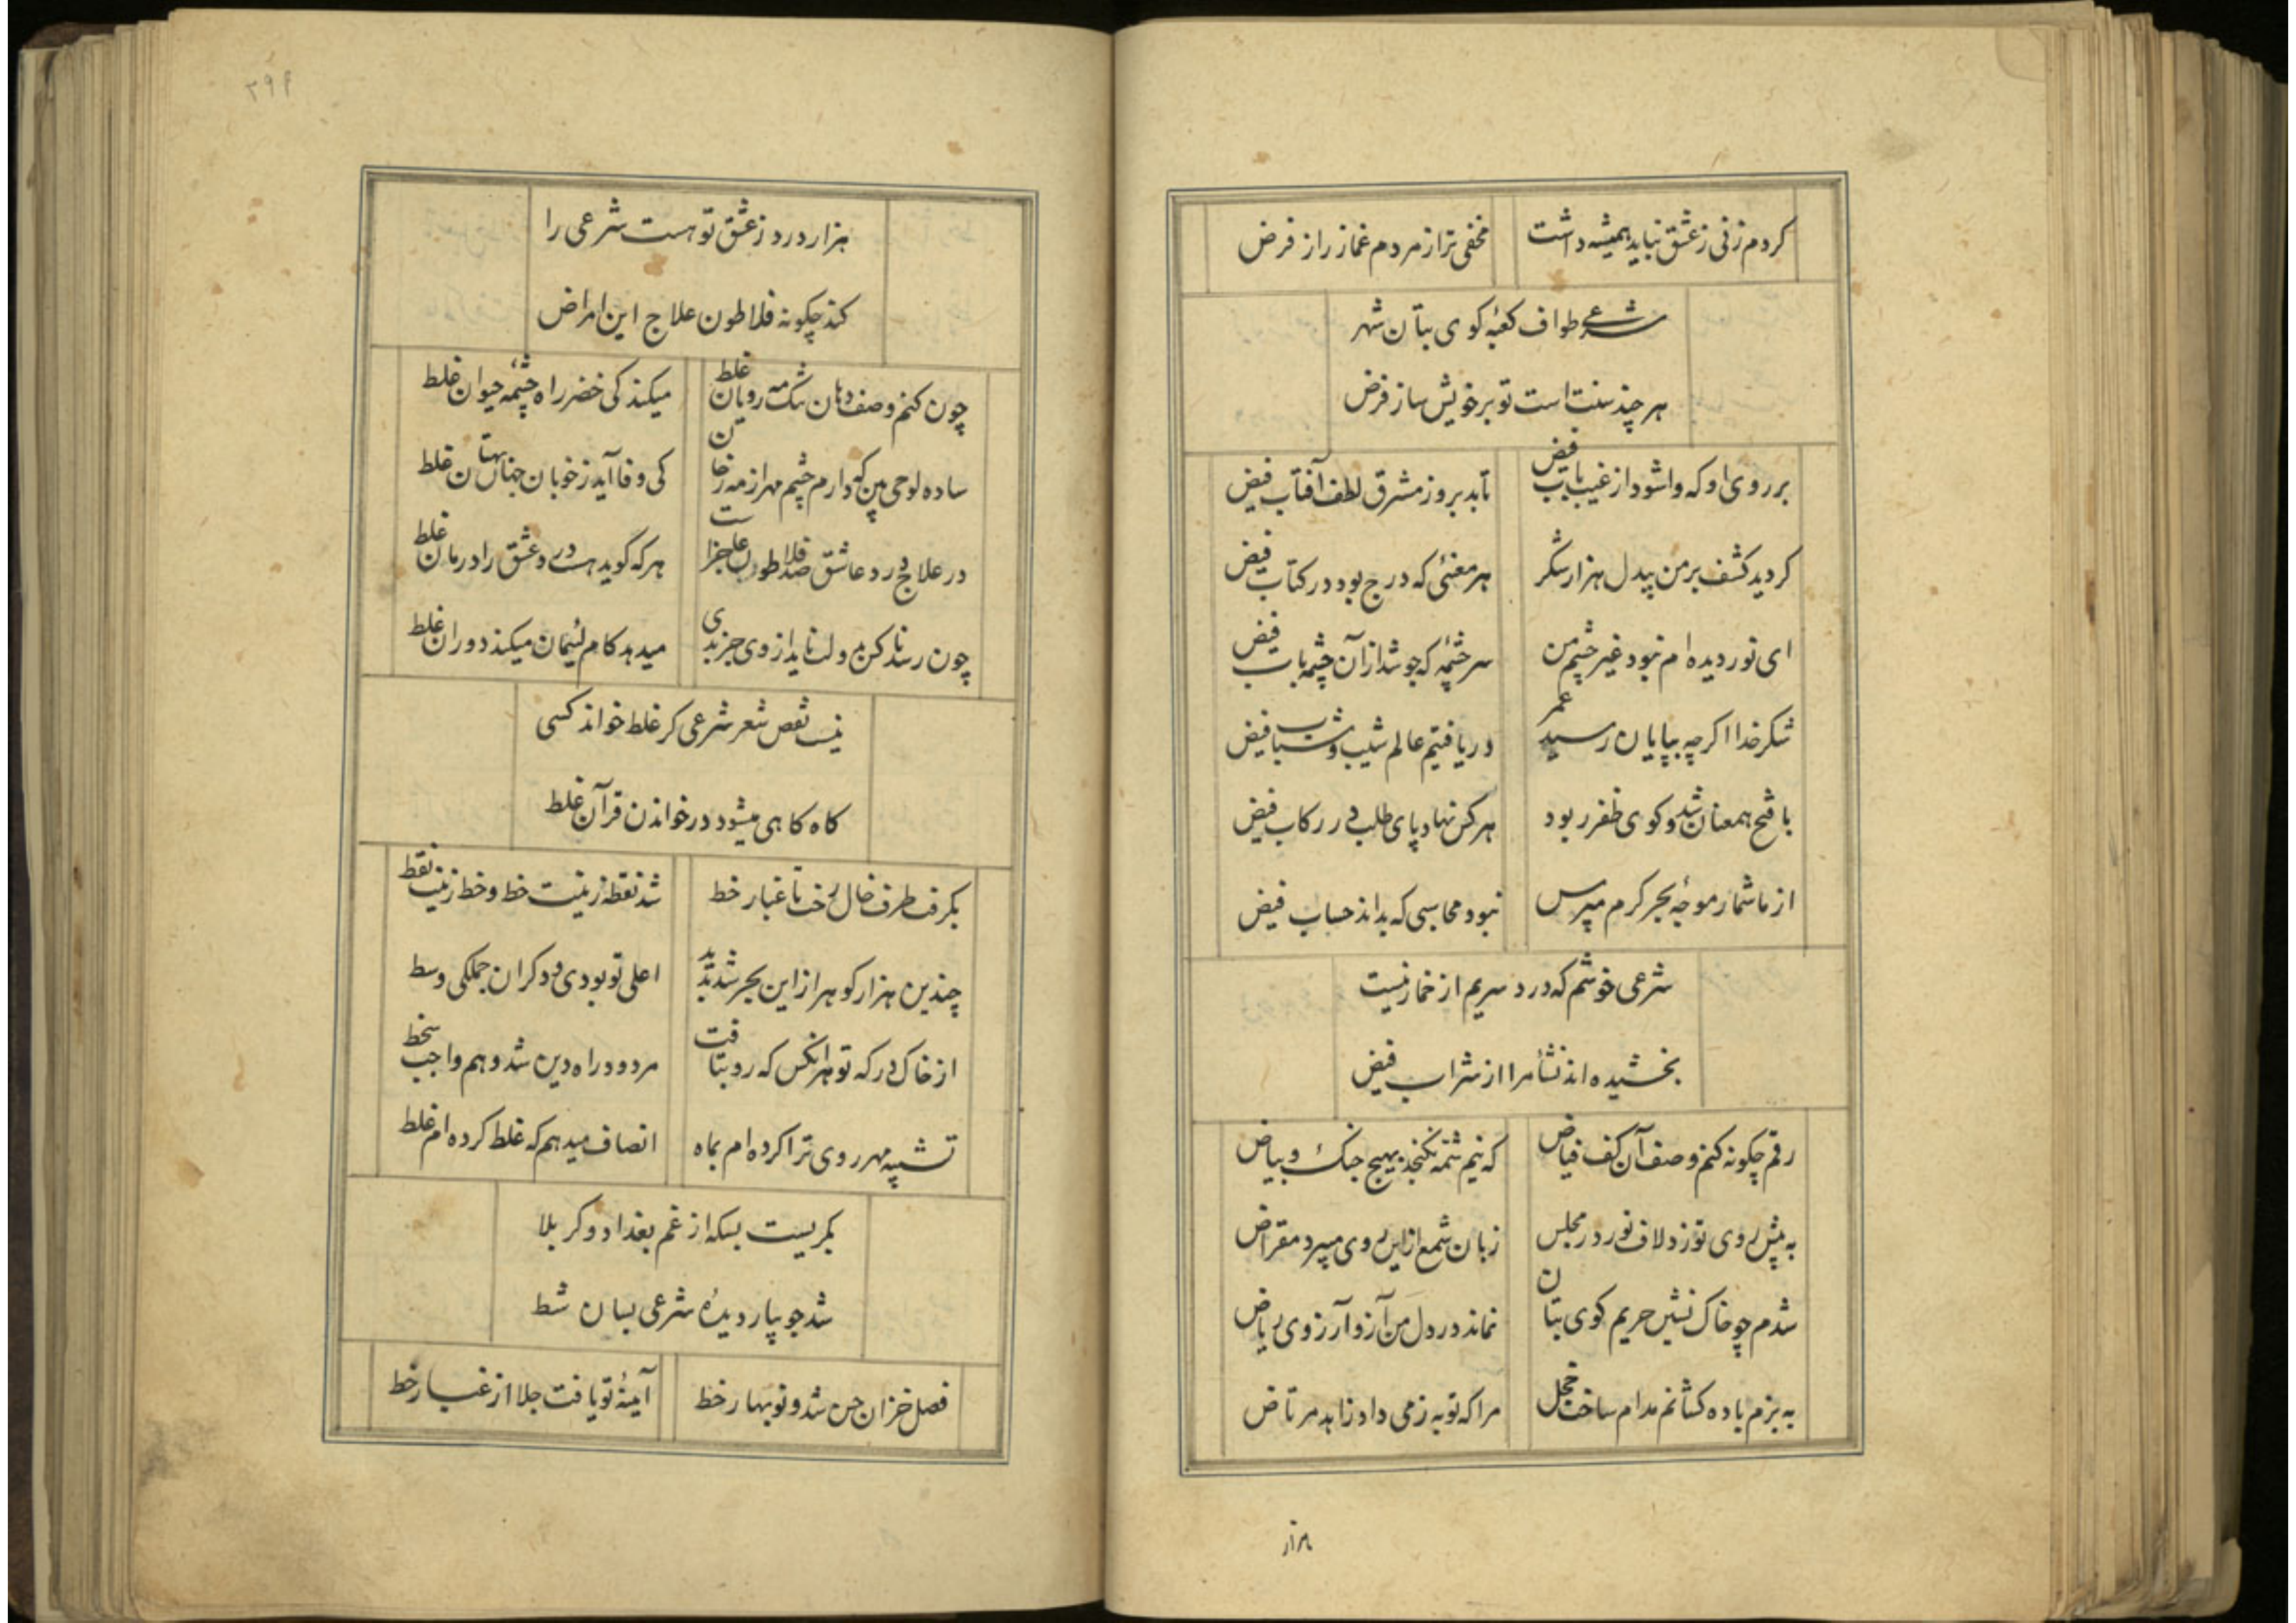 کردم زنی ز عشق نباید همیشه داشت
مخفی تر از مردم غماز راز فرض
شرعی طواف کعبه کوی بتان شهر
هر چند سنت است تو بر خویش ساز فرض
بر روی او که وا شود از غیب باب فیض
تابد بروز مشرق لطف آفتاب فیض
کردید کشف بر من بیدل هزار شکر
هر معنئی که درج بود در کتاب فیض
ای نور دیده ام نبود غیر چشم من
سرچشمهٔ که جوشد از آن چشمه باب فیض
شکر خدا اکرچه بپایان رسید عمر
دریافتیم عالم شیب و شباب فیض
با فتح همعنان شد و کوی ظفر ربود
هر کس نهاد پای طلب در رکاب فیض
از ما شمار موجهٔ بحر کرم مپرس
نبود محاسبی که بداند حساب فیض
شرعی خوشم که درد سریم از خمار نیست
بخشیده اند نشأ مرا از شراب فیض
رقم چکونه کنم وصف آن کف فیاض
که نیم شمه نکنجد بهیچ جنک و بیاض
به پیش روی تو زد لاف نور در مجلس
زبان شمع از این روی میبرد مقراض
شدم چو خاک نشین حریم کوی بتان
نماند در دل من آرزو آرزوی ریاض
به بزم باده کشانم مدام ساخت خجل
مرا که توبه ز می داد زاهد مرتاض
هزار
۳۹۹
هزار درد ز عشق تو هست شرعی را
کند چکونه فلاطون علاج این امراض
چون کنم وصف دهان تنک مه رویان غلط
میکند کی خضر راه چشمه حیوان غلط
ساده لوحی بین که دارم چشم مهر از مه رخان
کی وفا آید ز خوبان جهان غلط
در علاج درد عاشق صد فلاطون عاجز است
هر که گوید هست درد عشق را درمان غلط
چون رسد ناکس بدولت ناید از وی جز بدی
میدهد کام لئیمان میکند دوران غلط
نیست نقص شعر شرعی کر غلط خواند کسی
کاه کاهی میشود در خواندن قرآن غلط
بکرفت طرف خال رخت تا غبار خط
شد نقطه زینت خط و خط زینت نقط
چندین هزار کوهر از این بحر شد پدید
اعلی تو بودی و دکران جملکی وسط
از خاک درکه تو هر آنکس که رو بتافت
مردود راه دین شد و هم واجب سخط
تشبیه مهر روی ترا کرده ام بماه
انصاف میدهم که غلط کرده ام غلط
بکریست بسکه از غم بغداد و کربلا
شد جویبار دیدهٔ شرعی بسان شط
فصل خزان حسن شد و نوبهار خط
آینهٔ تو یافت جلا از غبار خط